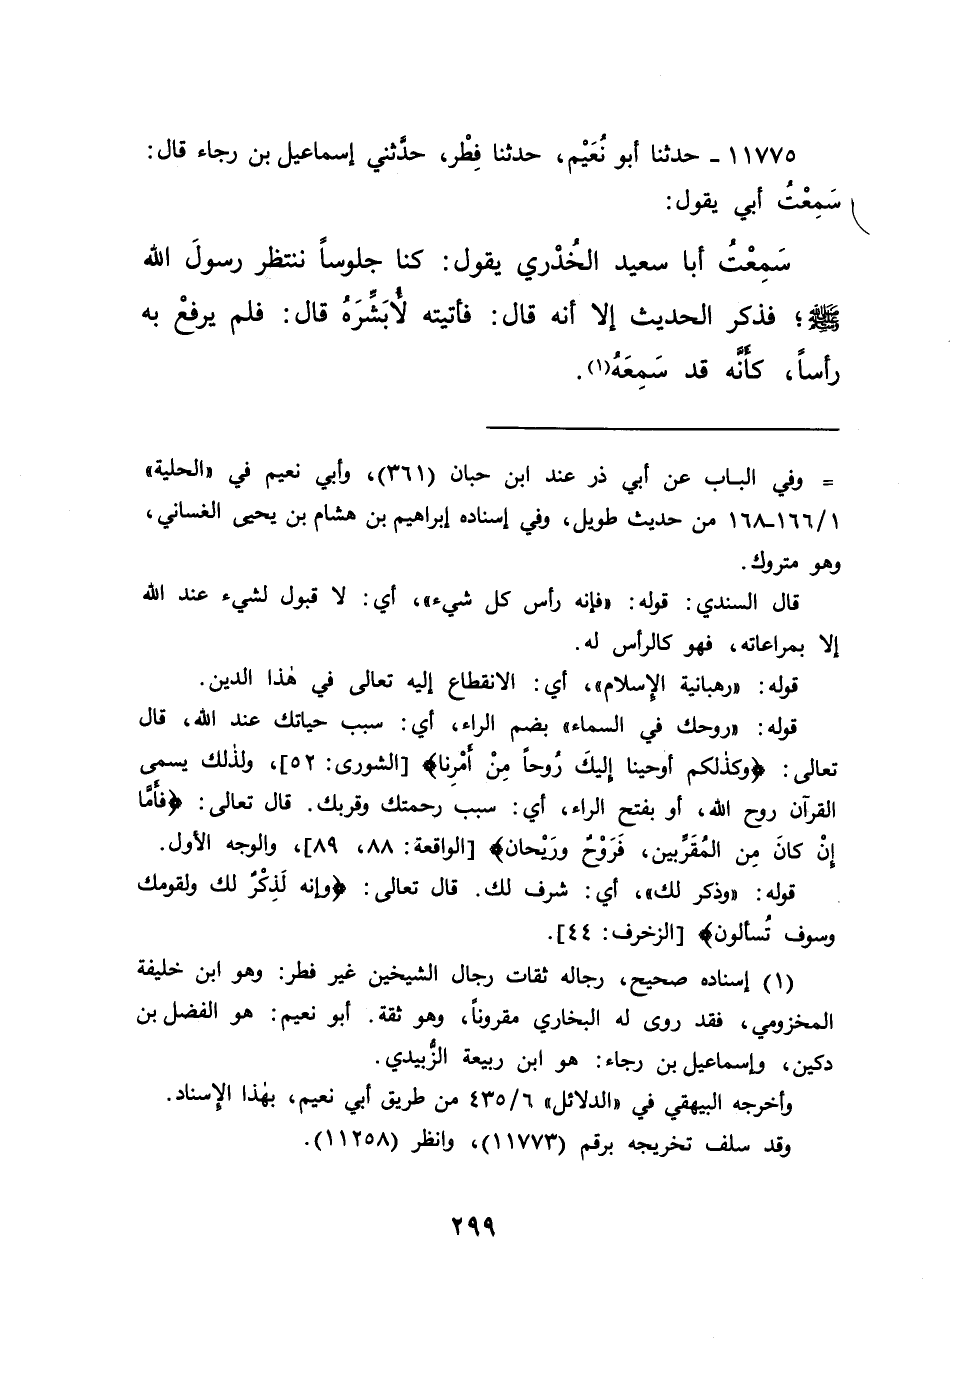 ١١٧٧٥ ـ حدثنا أبو نُعَيْم، حدثنا فِطْر، حدَّثني إسماعيل بن رجاء قال:
سَمِعْتُ أبي يقول:
سَمِعْتُ أبا سعيد الخُدْري يقول: كنا جلوساً ننتظر رسولَ الله
ﷺ؛ فذكر الحديث إلا أنه قال: فأتيته لأُبَشِّرَهُ قال: فلم يرفعْ به
رأساً، كأنَّه قد سَمِعَهُ(١).
= وفي الباب عن أبي ذر عند ابن حبان (٣٦١)، وأبي نعيم في «الحلية»
١/١٦٦ـ١٦٨ من حديث طويل، وفي إسناده إبراهيم بن هشام بن يحيى الغساني،
وهو متروك.
قال السندي: قوله: «فإنه رأس كل شيء»، أي: لا قبول لشيء عند الله
إلا بمراعاته، فهو كالرأس له.
قوله: «رهبانية الإسلام»، أي: الانقطاع إليه تعالى في هٰذا الدين.
قوله: «روحك في السماء» بضم الراء، أي: سبب حياتك عند الله، قال
تعالى: ﴿وكذٰلكم أوحينا إليكَ رُوحاً مِنْ أَمْرِنا﴾ [الشورى: ٥٢]، ولذٰلك يسمى
القرآن روح الله، أو بفتح الراء، أي: سبب رحمتك وقربك. قال تعالى: ﴿فأَمَّا
إِنْ كانَ مِن المُقَرَّبين، فَرَوْحٌ ورَيْحان﴾ [الواقعة: ٨٨، ٨٩]، والوجه الأول.
قوله: «وذكر لك»، أي: شرف لك. قال تعالى: ﴿وإنه لَذِكْرٌ لك ولقومك
وسوف تُسألون﴾ [الزخرف: ٤٤].
(١) إسناده صحيح، رجاله ثقات رجال الشيخين غير فطر: وهو ابن خليفة
المخزومي، فقد روى له البخاري مقروناً، وهو ثقة. أبو نعيم: هو الفضل بن
دكين، وإسماعيل بن رجاء: هو ابن ربيعة الزُّبيدي.
وأخرجه البيهقي في «الدلائل» ٤٣٥/٦ من طريق أبي نعيم، بهٰذا الإسناد.
وقد سلف تخريجه برقم (١١٧٧٣)، وانظر (١١٢٥٨).
٢٩٩